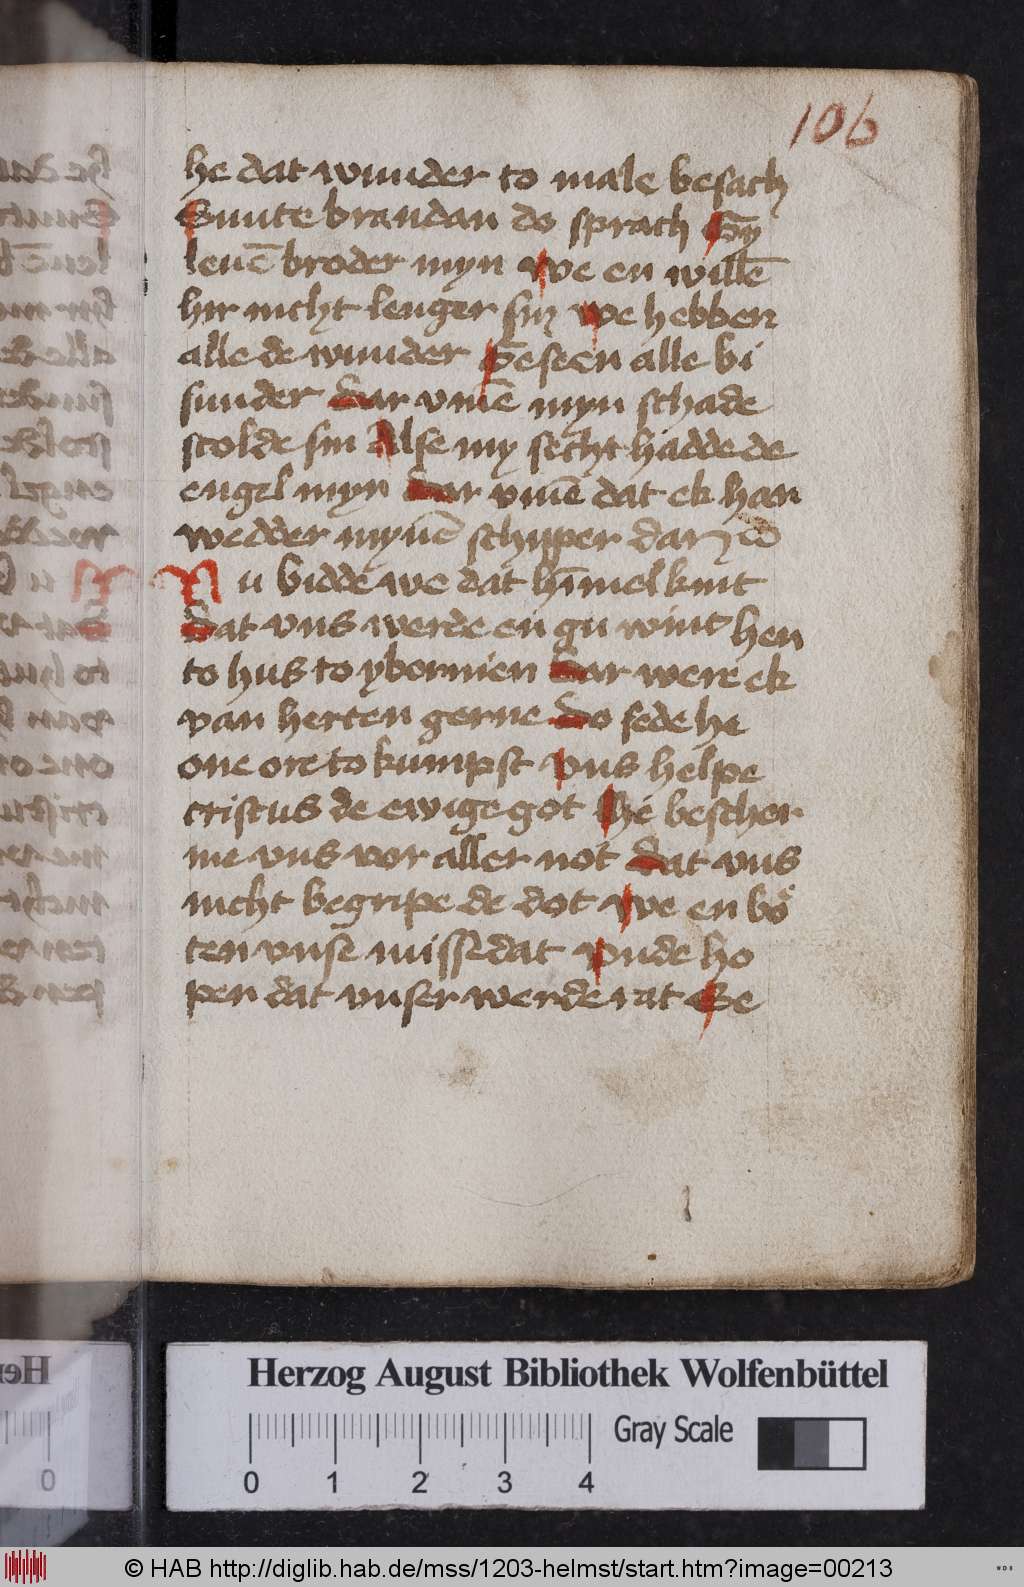 106
he dat wunder to male besach
Sunte brandan do sprach Gy
leuē broder myn we en willē
hir nicht lenger sin we hebben
alle de wunder Geseen alle bi
sunder dar vmē myn schade
scolde sin Alse my secht hadde de
engel myn dar vmē dat ek han
wedder mynē schipper dar
Nu bidde we dat hīmel kint
dat vns werde en gu wint hen
to hus to ybornien dar were ek
van herten gerne do sede he
one ore to kumpst vns helpe
cristus de ewige got He bescher
me vns vor aller not dat vns
nicht begripe de dot we en bo
ten vnse missedat vnde ho
pen dat vnser werde rat Se
Herzog August Bibliothek Wolfenbüttel
Gray Scale
0 1 2 3 4
© HAB http://diglib.hab.de/mss/1203-helmst/start.htm?image=00213